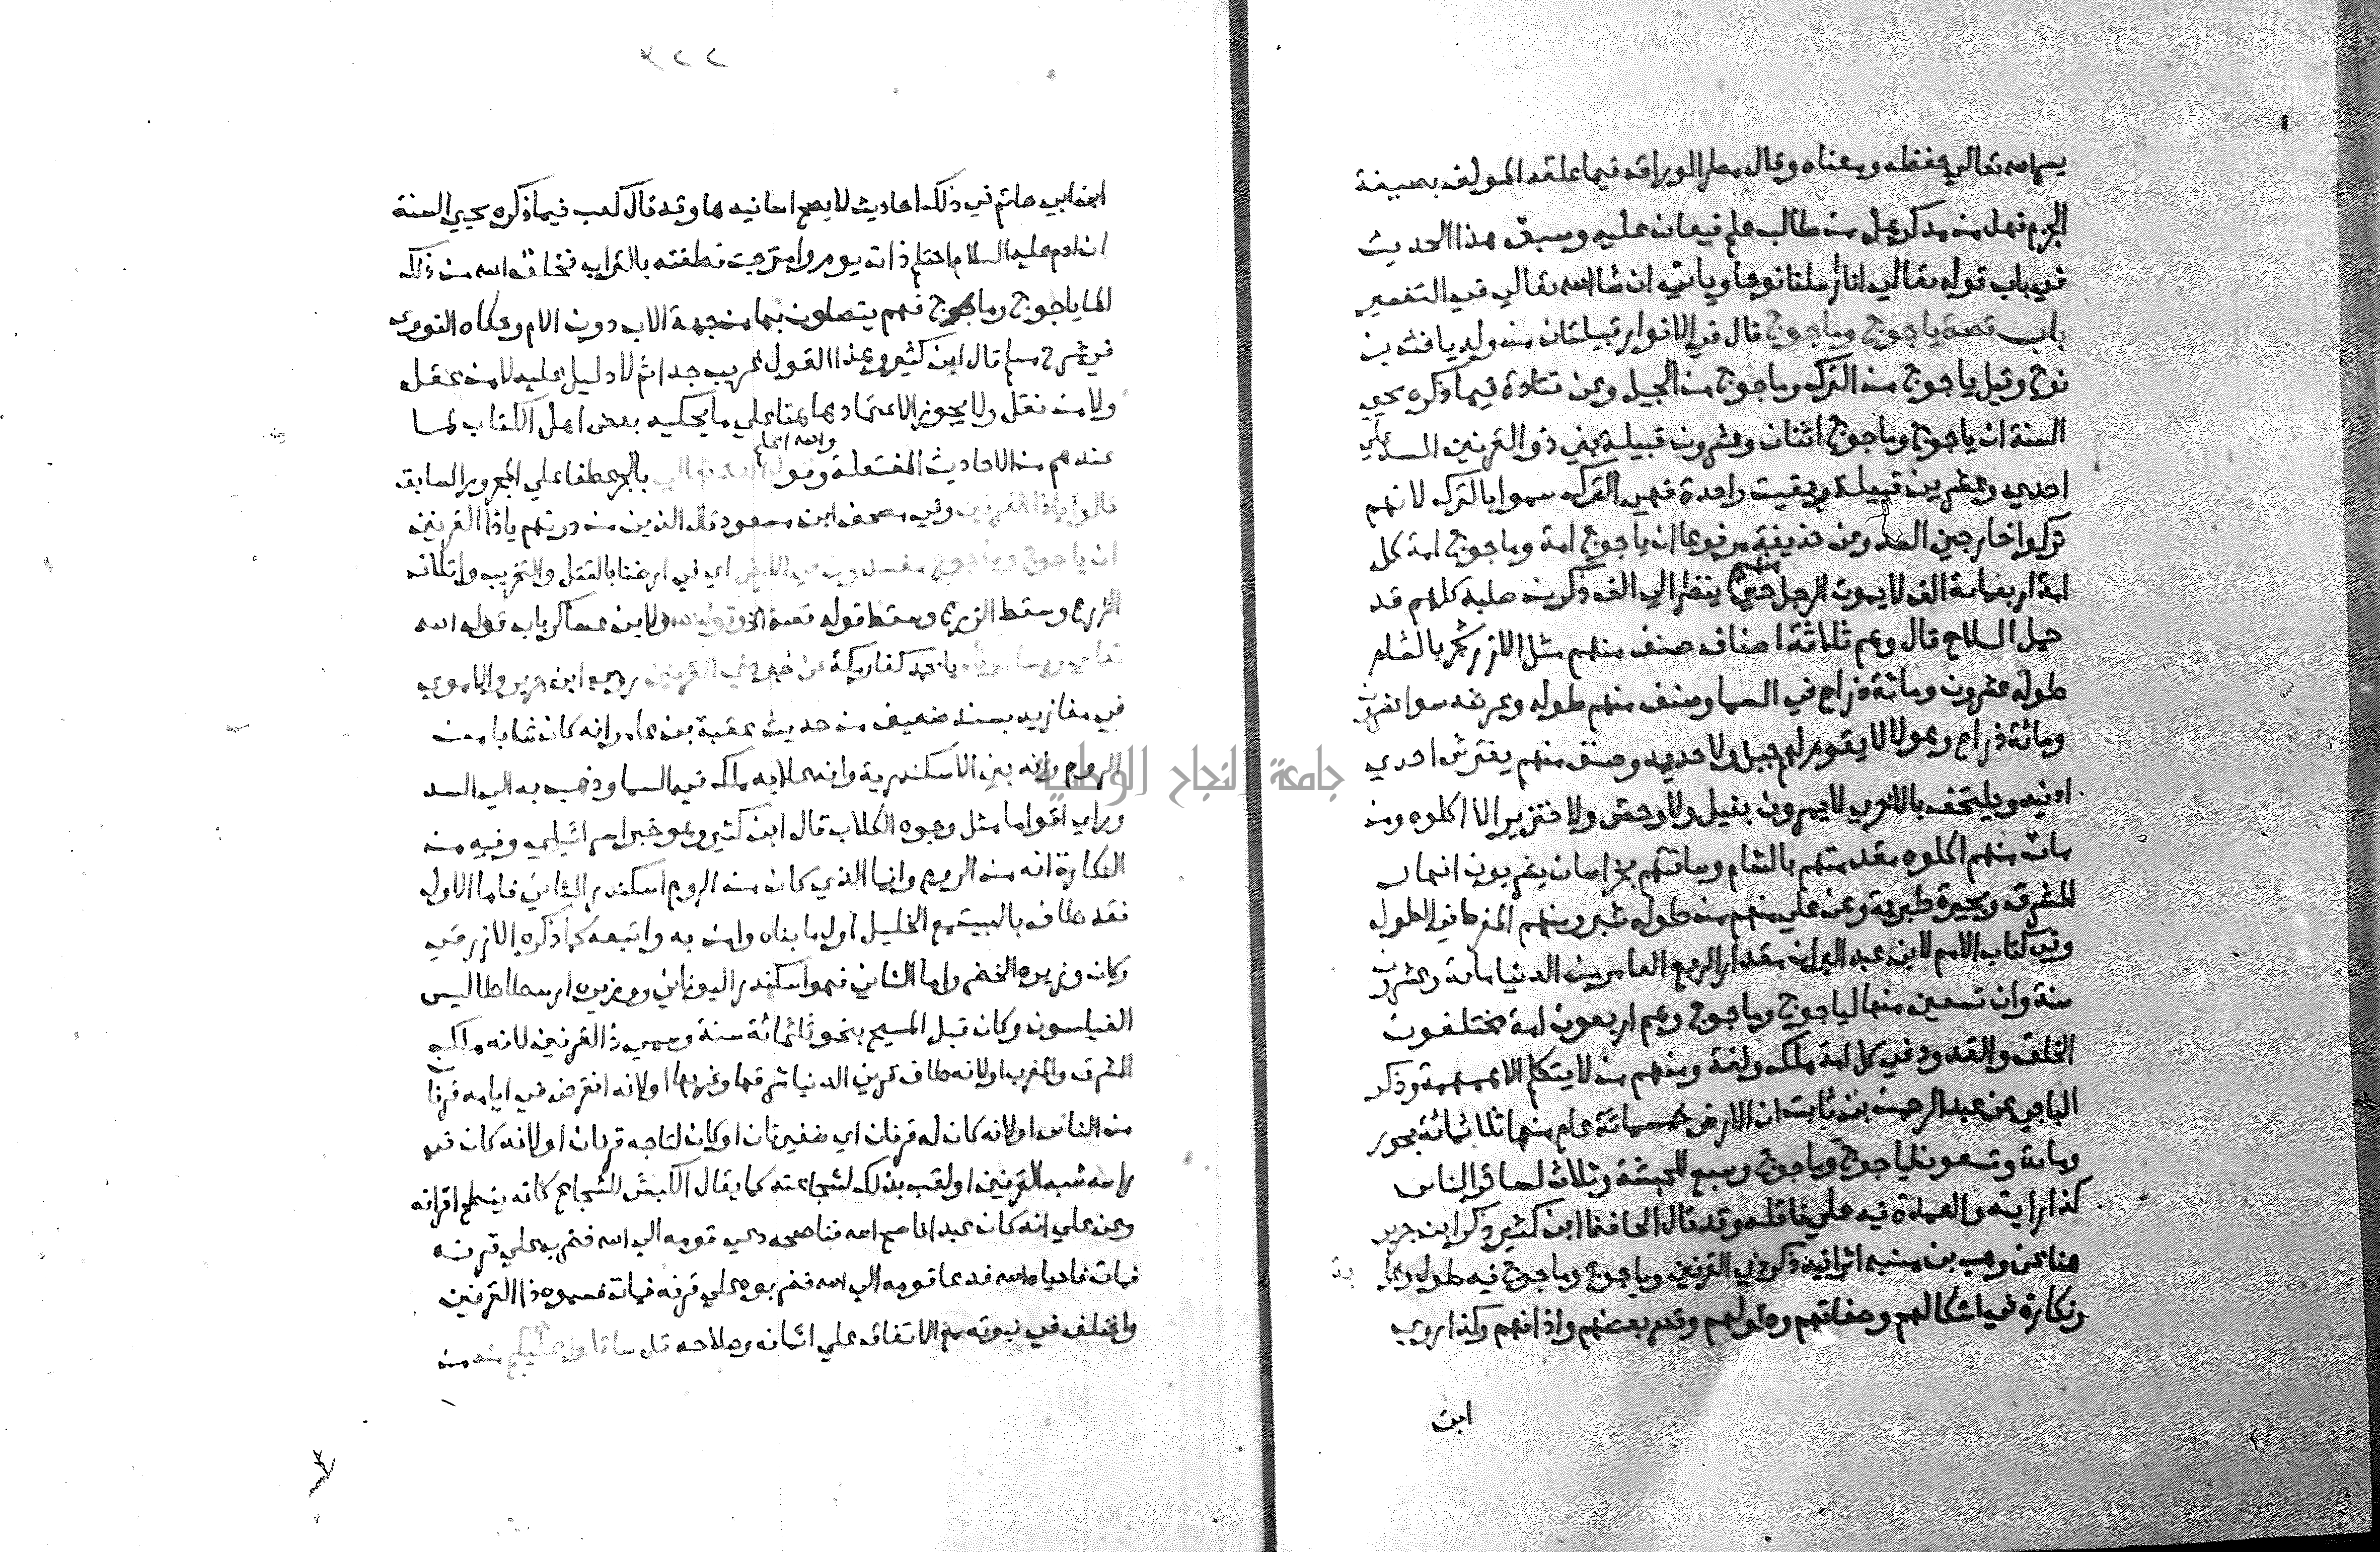 يسر الله تعالي حفظه ومعناه وقال مطر الوراق فيما علقه المولف بصيغة
الجزم فهل من مدكر هل من طالب علم فيعان عليه وسبق هذا الحديث
في باب قوله تعالي انا ارسلنا نوحا وياتي ان شا الله تعالي في التفسير
باب قصة ياجوج وماجوج قال في الانوار قبيلتان من ولد يافث بن
نوح وقيل ياجوج من الترك وماجوج من الجيل وعن قتادة فيما ذكره محيي
السنة ان ياجوج وماجوج اثنان وعشرون قبيلة بني ذو القرنين السد علي
احدي وعشرين قبيلة وبقيت واحدة فهم الترك سموا بالترك لانهم
تركوا خارجين السد وعن حذيفة مرفوعا ان ياجوج امة وماجوج امة كل
امة اربعماية الف لا يموت الرجل منهم حتي ينظر الي الف ذكر من صلبه كلهم قد
حمل السلاح قال وهم ثلاثة اصناف صنف منهم مثل الارز شجر بالشام
طوله عشرون وماية ذراع في السما وصنف منهم طوله وعرضه سوا عشرون
وماية ذراع وهولا لا يقوم لهم جبل ولا حديد وصنف منهم يفترش احدي
اذنيه ويلتحف بالاخري لا يمرون بفيل ولا وحش ولا خنزير الا اكلوه ومن
مات منهم اكلوه مقدمتهم بالشام وساقتهم بخراسان يشربون انهار
المشرق وبحيرة طبرية وعن علي منهم من طوله شبر ومنهم المفرط في الطول
وفي كتاب الامم لابن عبد البر ان مقدار الربع العامر من الدنيا ماية وعشرون
سنة وان تسعين منها لياجوج وماجوج وهم اربعون امة مختلفون
الخلق والقدود في كل امة ملك ولغة ومنهم من لا يتكلم الا همهمة وذكر
الباجي عن عبد الرحمن بن ثابت ان الارض خمسماية عام منها ثلاثماية بحور
وماية وتسعون لياجوج وماجوج وسبع للحبشة وثلاث لسائر الناس
كذا رايته والعهدة فيه علي ناقله وقد قال الحافظ ابن كثير ذكر ابن جرير
هنا عن وهب بن منبه اثرا فيه ذكر ذي القرنين وياجوج وماجوج فيه طول وغرابة
ونكارة في اشكالهم وصفاتهم وطولهم وقصر بعضهم واذانهم وكذا روي
ابن
٣٢٢
ابن ابي حاتم في ذلك احاديث لا يصح اسانيدها وقد قال كعب فيما ذكره محيي السنة
ان ادم عليه السلام احتلم ذات يوم وامتزجت نطفته بالتراب فخلق الله من ذلك
الما ياجوج وماجوج فهم يتصلون بنا من جهة الاب دون الام وحكاه النووي
في شرح مسلم قال ابن كثير وهذا القول غريب جدا ثم لا دليل عليه لا من عقل
ولا من نقل ولا يجوز الاعتماد هاهنا علي ما يحكيه بعض اهل الكتاب لما
عندهم من الاحاديث المفتعلة والله اعلم وقول الله تعالي بالجر عطفا علي المجرور السابق
قالوا ياذا القرنين وفي مصحف ابن مسعود قال الذين من دونهم ياذا القرنين
ان ياجوج وماجوج مفسدون في الارض اي في ارضنا بالقتل والتخريب واتلاف
الزرع وسقط لابن عساكر باب قوله الله
روي ابن جرير والاموي
في مغازيه بسند ضعيف من حديث عقبة بن عامر انه كان شابا من
الروم وانه بني الاسكندرية وانه علا به ملك في السما وذهب به الي السد
وراي اقواما مثل وجوه الكلاب قال ابن كثير وهو خبر اسرائيلي وفيه من
النكارة انه من الروم وانما الذي كان من الروم اسكندر الثاني فاما الاول
فقد طاف بالبيت مع الخليل اول ما بناه وامن به واتبعه كما ذكره الازرقي
وكان وزيره الخضر واما الثاني فهو اسكندر اليوناني ووزيره ارسطاطاليس
الفيلسوف وكان قبل المسيح بنحو ثلثمائة سنة وسمي ذا القرنين لانه ملك
المشرق والمغرب او لانه طاف قرني الدنيا شرقها وغربها او لانه انقرض في ايامه قرنا
من الناس او لانه كان له قرنان اي ضفيرتان او كان لتاجه قرنان او لانه كان في
راسه شبه القرنين او لقب بذلك لشجاعته كما يقال الكبش للشجاع كانه ينطح اقرانه
وعن علي انه كان عبدا ناصح الله فناصحه دعي قومه الي الله فضرب علي قرنه
فمات فاحياه الله فدعا قومه الي الله فضربوه علي قرنه فمات فسموه ذا القرنين
واختلف في نبوته مع الاتفاق علي ايمانه وصلاحه قل ساتلوا عليكم منه من
جامعة النجاح الوطنية